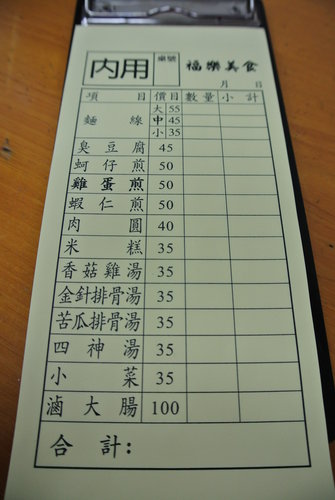 內用 桌號 福樂美食
月 日
項目 價目 數量 小計
麵線 大 55
中 45
小 35
臭豆腐 45
蚵仔煎 50
雞蛋煎 50
蝦仁煎 50
肉圓 40
米糕 35
香菇雞湯 35
金針排骨湯 35
苦瓜排骨湯 35
四神湯 35
小菜 35
滷大腸 100
合計: